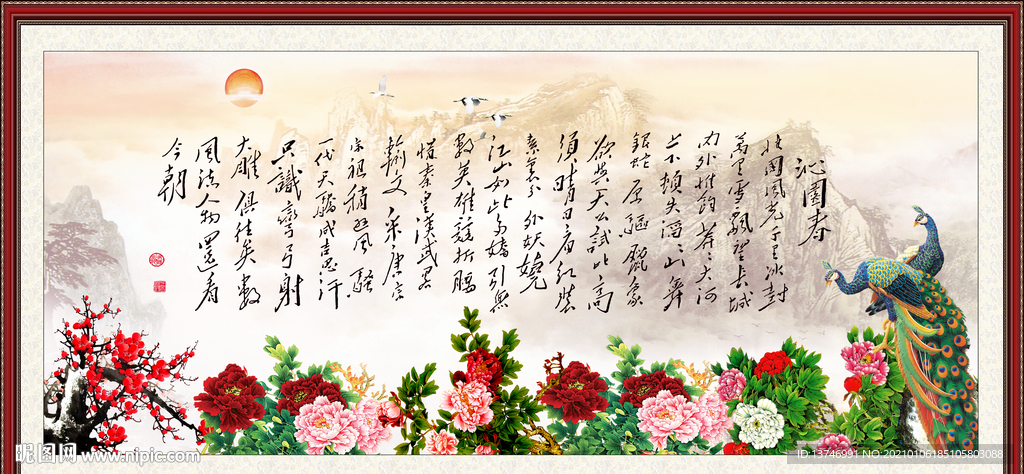 沁園春
北國風光千里冰封
萬里雪飄望長城
内外惟餘莽莽大河
上下頓失滔滔山舞
銀蛇原驅臘象
欲與天公試比高
須晴日看紅裝
素裹分外妖嬈
江山如此多嬌引無
數英雄競折腰
惜秦皇漢武略
輸文采唐宗
宋祖稍遜風騷
一代天驕成吉思汗
只識彎弓射
大雕俱往矣數
風流人物還看
今朝
昵图网 www.nipic.com
ID:13746991 NO:20210106185105803088